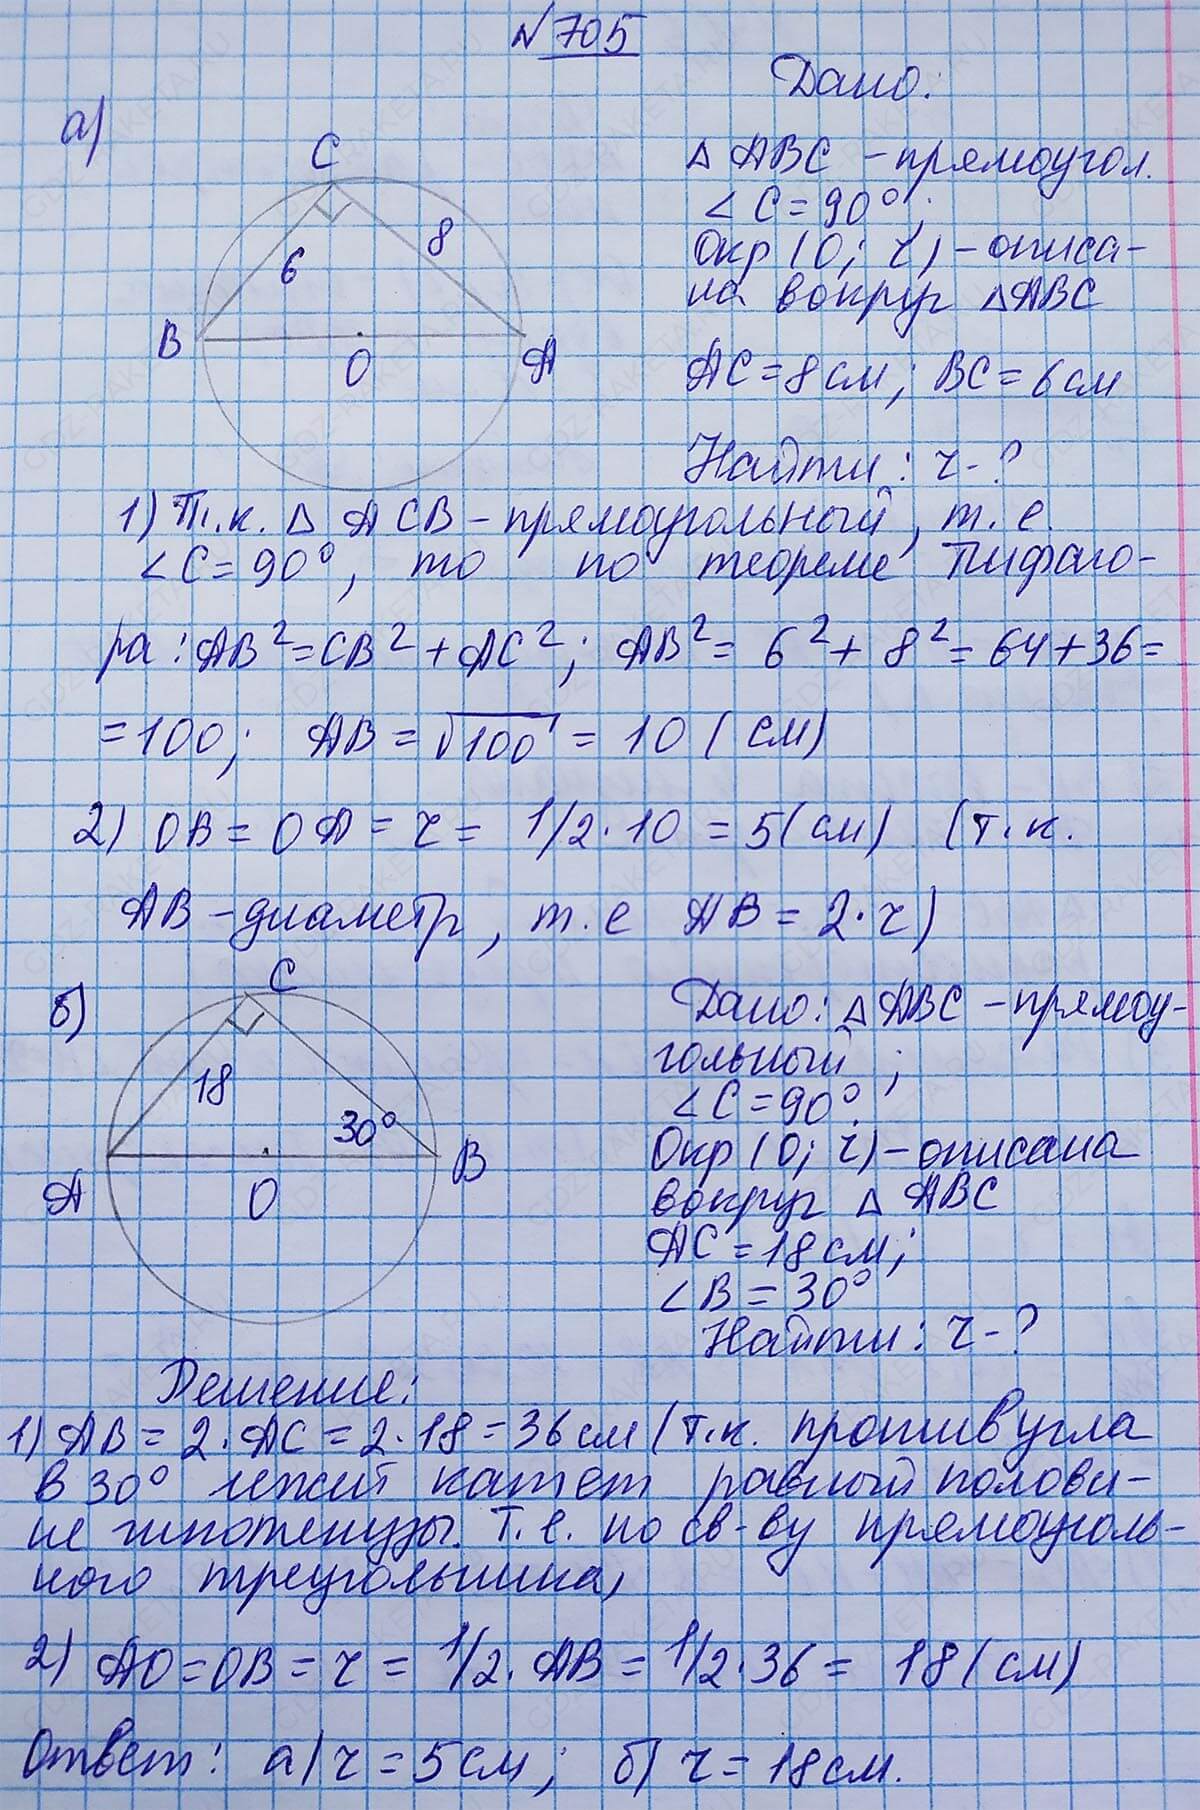 №705
Дано:
а)
C
6
8
B
O
A
△ ABC - прямоугол.
∠C = 90°;
Окр (O; r) - описа-
на вокруг △ABC
AC = 8 см; BC = 6 см
Найти: r - ?
1) Т.к. △ ACB - прямоугольный, т.е.
∠C = 90°, то по теореме Пифаго-
ра: AB² = CB² + AC²; AB² = 6² + 8² = 64 + 36 =
= 100; AB = √100 = 10 (см)
2) OB = OA = r = 1/2 · 10 = 5 (см) (т.к.
AB - диаметр, т.е AB = 2 · r)
б)
C
18
30°
A
O
B
Дано: △ ABC - прямоу-
гольный;
∠C = 90°.
Окр (O; r) - описана
вокруг △ ABC
AC = 18 см;
∠B = 30°
Найти: r - ?
Решение:
1) AB = 2 · AC = 2 · 18 = 36 см (т.к. против угла
в 30° лежит катет равный полови-
не гипотенузы. Т.е. по св-ву прямоуголь-
ного треугольника)
2) AO = OB = r = 1/2 · AB = 1/2 · 36 = 18 (см)
Ответ: а) r = 5 см; б) r = 18 см.